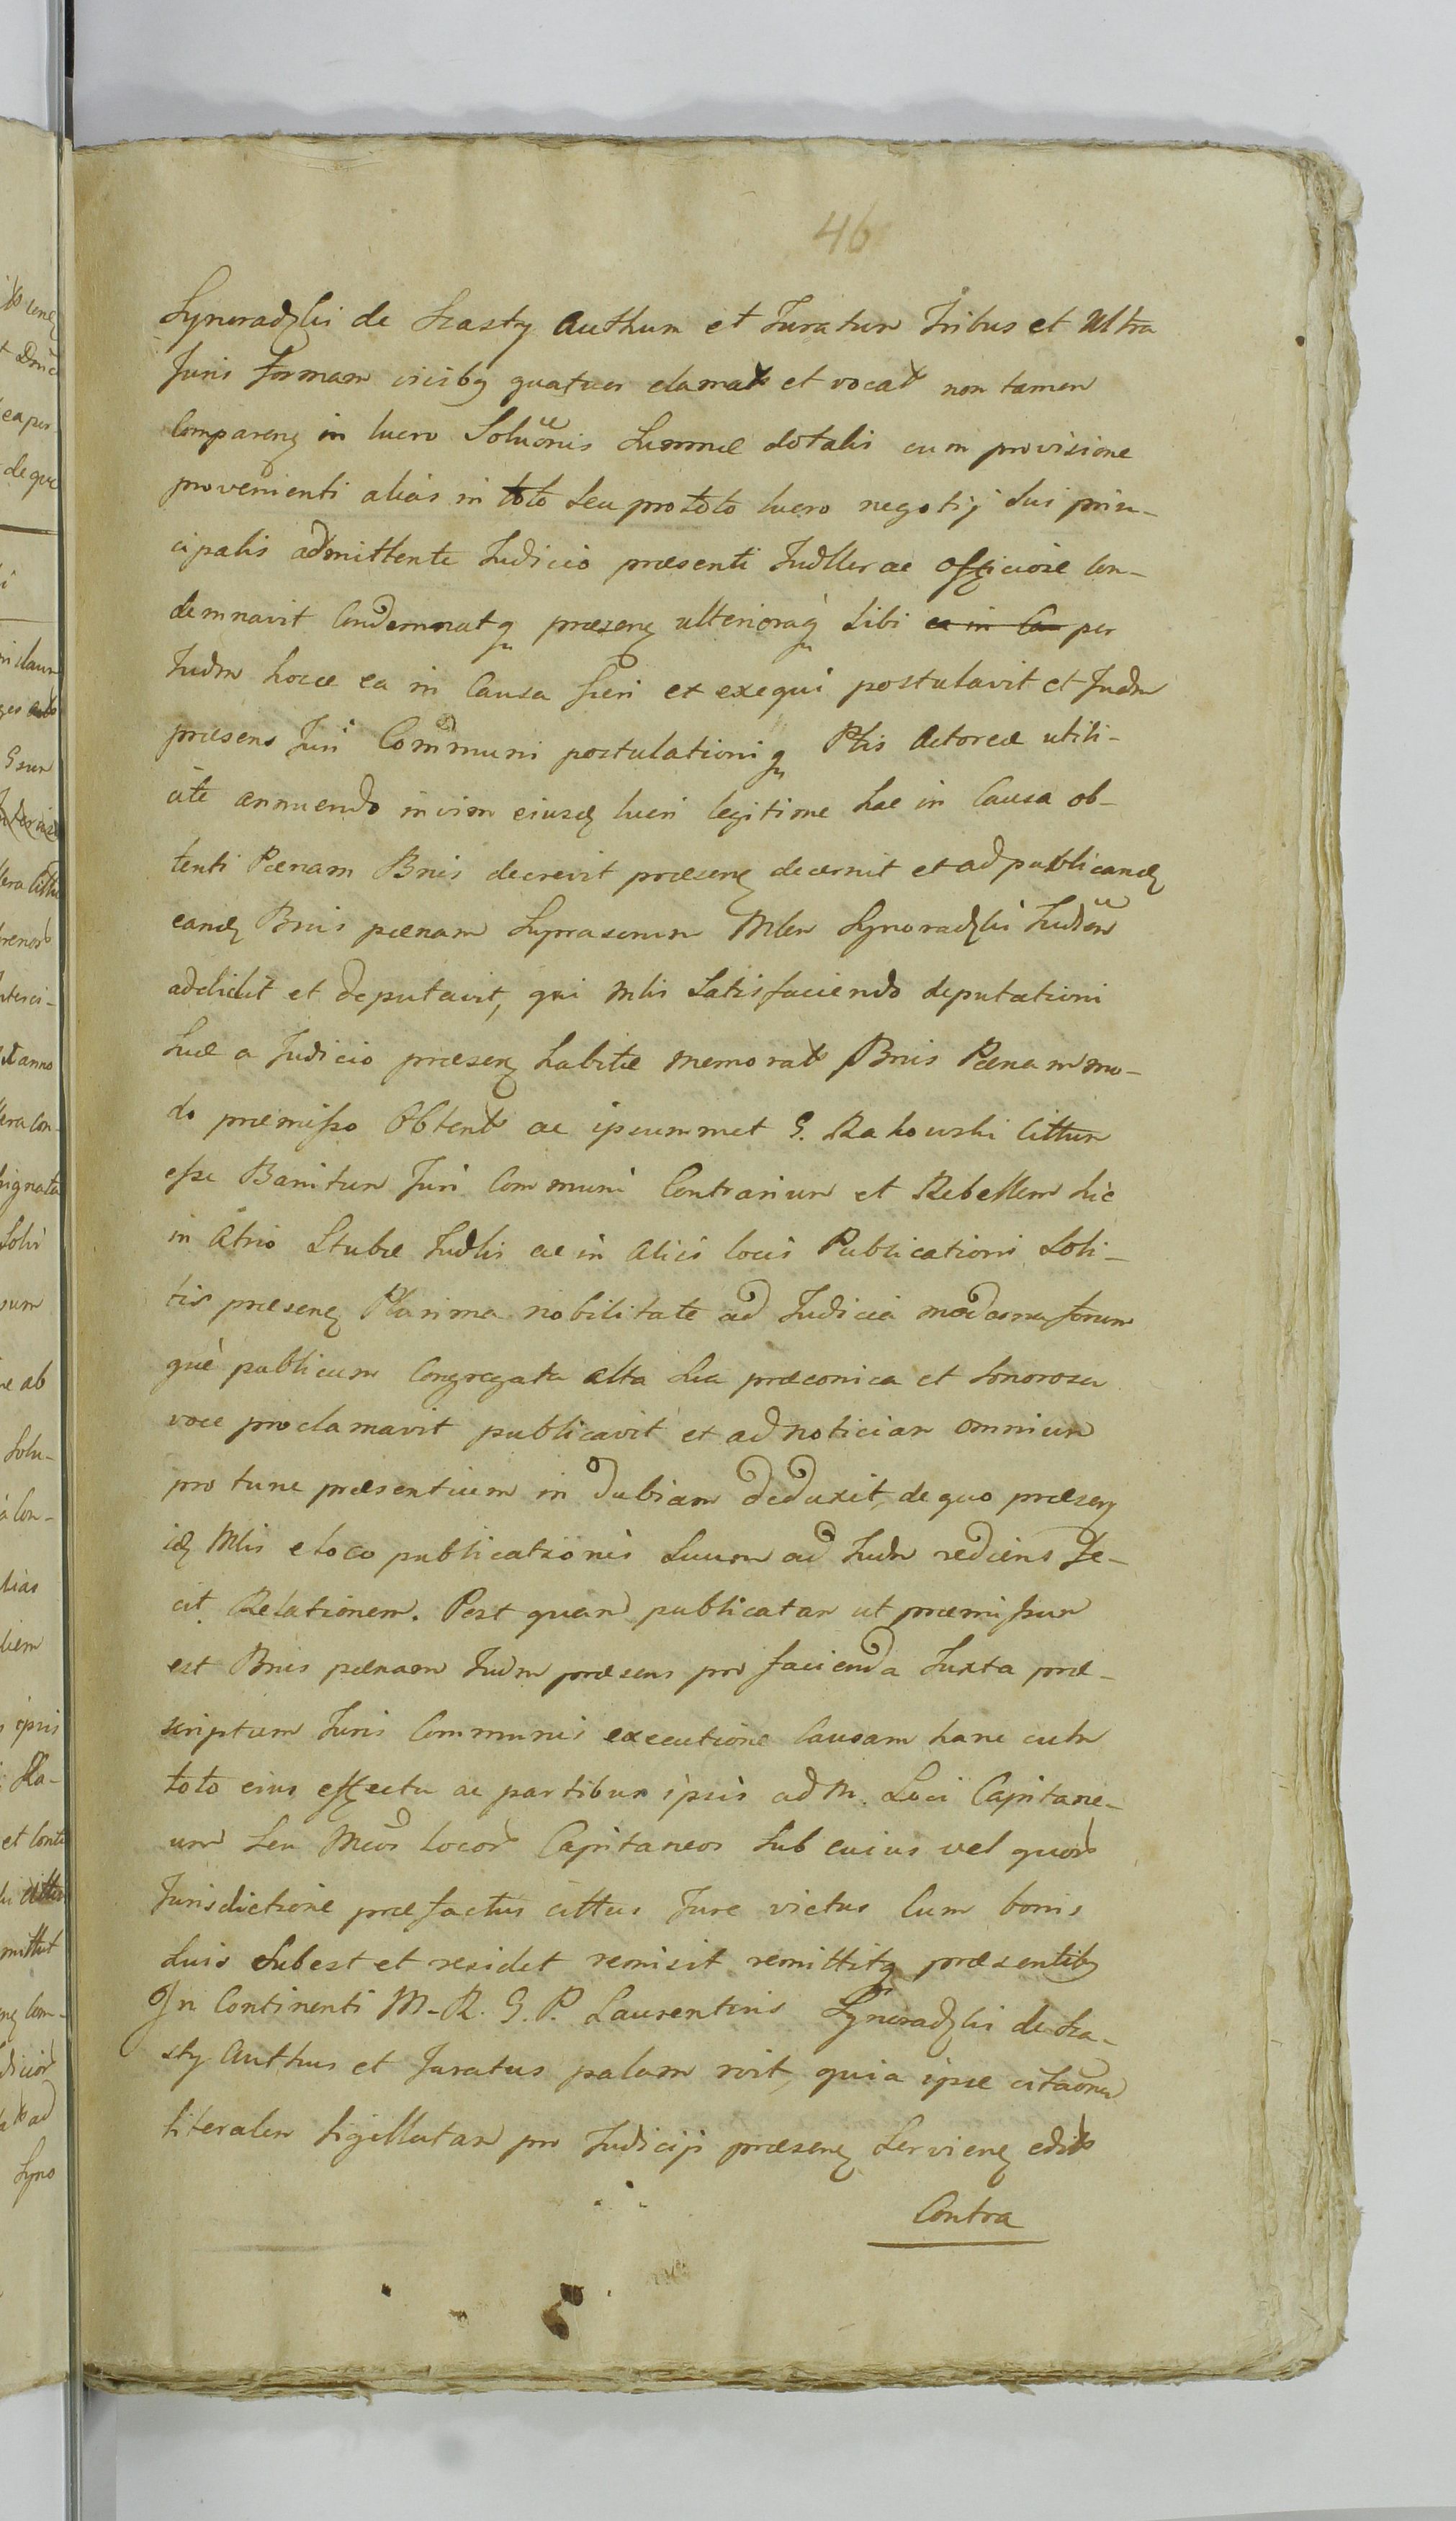 46
Synoradzki de Szasty Authum et Juratum Tribus et Ultra
Juris formam vicibq quatuor clamat et vocat non tamen
Comparenq in lucro Soluonis Summæ dotalis cum provisione
provenienti alias in toto seu pro toto lucro negotij sui prin-
cipalis admittente Judicio præsenti Judller ac officiose Con-
demnavit Condemnatq præsenq ulterioraq sibi ea in Ca per
Judm hocce ea in Causa fieri et exequi postulavit et Judm
præsens Juri Communi postulationiq Ptis Actoreæ utili-
cite annuendo in vim eiusq lucri legitime hac in Causa ob-
tenti Pænam Bnis decrevit præsenq decernit et ad publicandq
eandq Bnis pænam Suprascrum Mlem Synoradzki Judm
addidit et deputavit, qui Mlis satisfaciendo deputationi
suæ a Judicio præsenq habitæ memorat Bnis Pænam mo-
do præmisso Obtent ac ipsummet G. Rakowski Cittum
esse Banitum Juri Communi Contrarium et Rebellem hic
in Atrio Stubæ Judlis ac in aliis locis Publicationi Soli-
tis præsenq Plurima nobilitate ad Judicia moderna forum
què publicum Congregata alta sua præconica et sonorosa
voce proclamavit publicavit et ad noticiam omnium
pro tunc præsentium in dubiam deduxit, de quo præsenq
idq Mlis e loco publicationis suum ad Judm rediens fe-
cit Relationem. Post quam publicatam ut præmissum
est Bnis pænam Judm præsens pro facienda Juxta præ-
scriptum Juris Communis executione Causam hanc cum
toto eius effectu ac partibus ipsis ad M. Loci Capitane-
um seu Mcos locor Capitaneos sub cuius vel quor
Jurisdictione præfactus cittus Jure victus Cum bonis
suis subest et residet remisit remittitq præsentibq
In Continenti M. R. G. P. Laurentius Synoradzki de Sza-
sty Authus et Juratus palam rvit, quia ipse citaonem
literalem sigillatam pro Judicijs præsenq Servienq edit
Contra